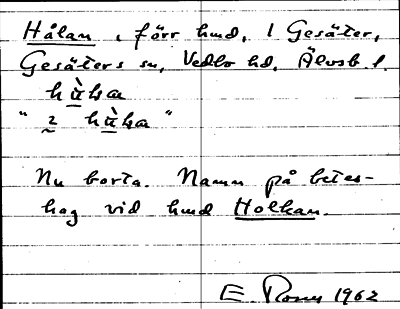 Hålan, förr hmd, 1 Gesäter,
Gesäters sn, Vedbo hd, Älvsb. l.
hùḷa
" 2 hùḷa "
Nu borta. Namn på betes-
hag vid hmd Holkan.
E. 1962